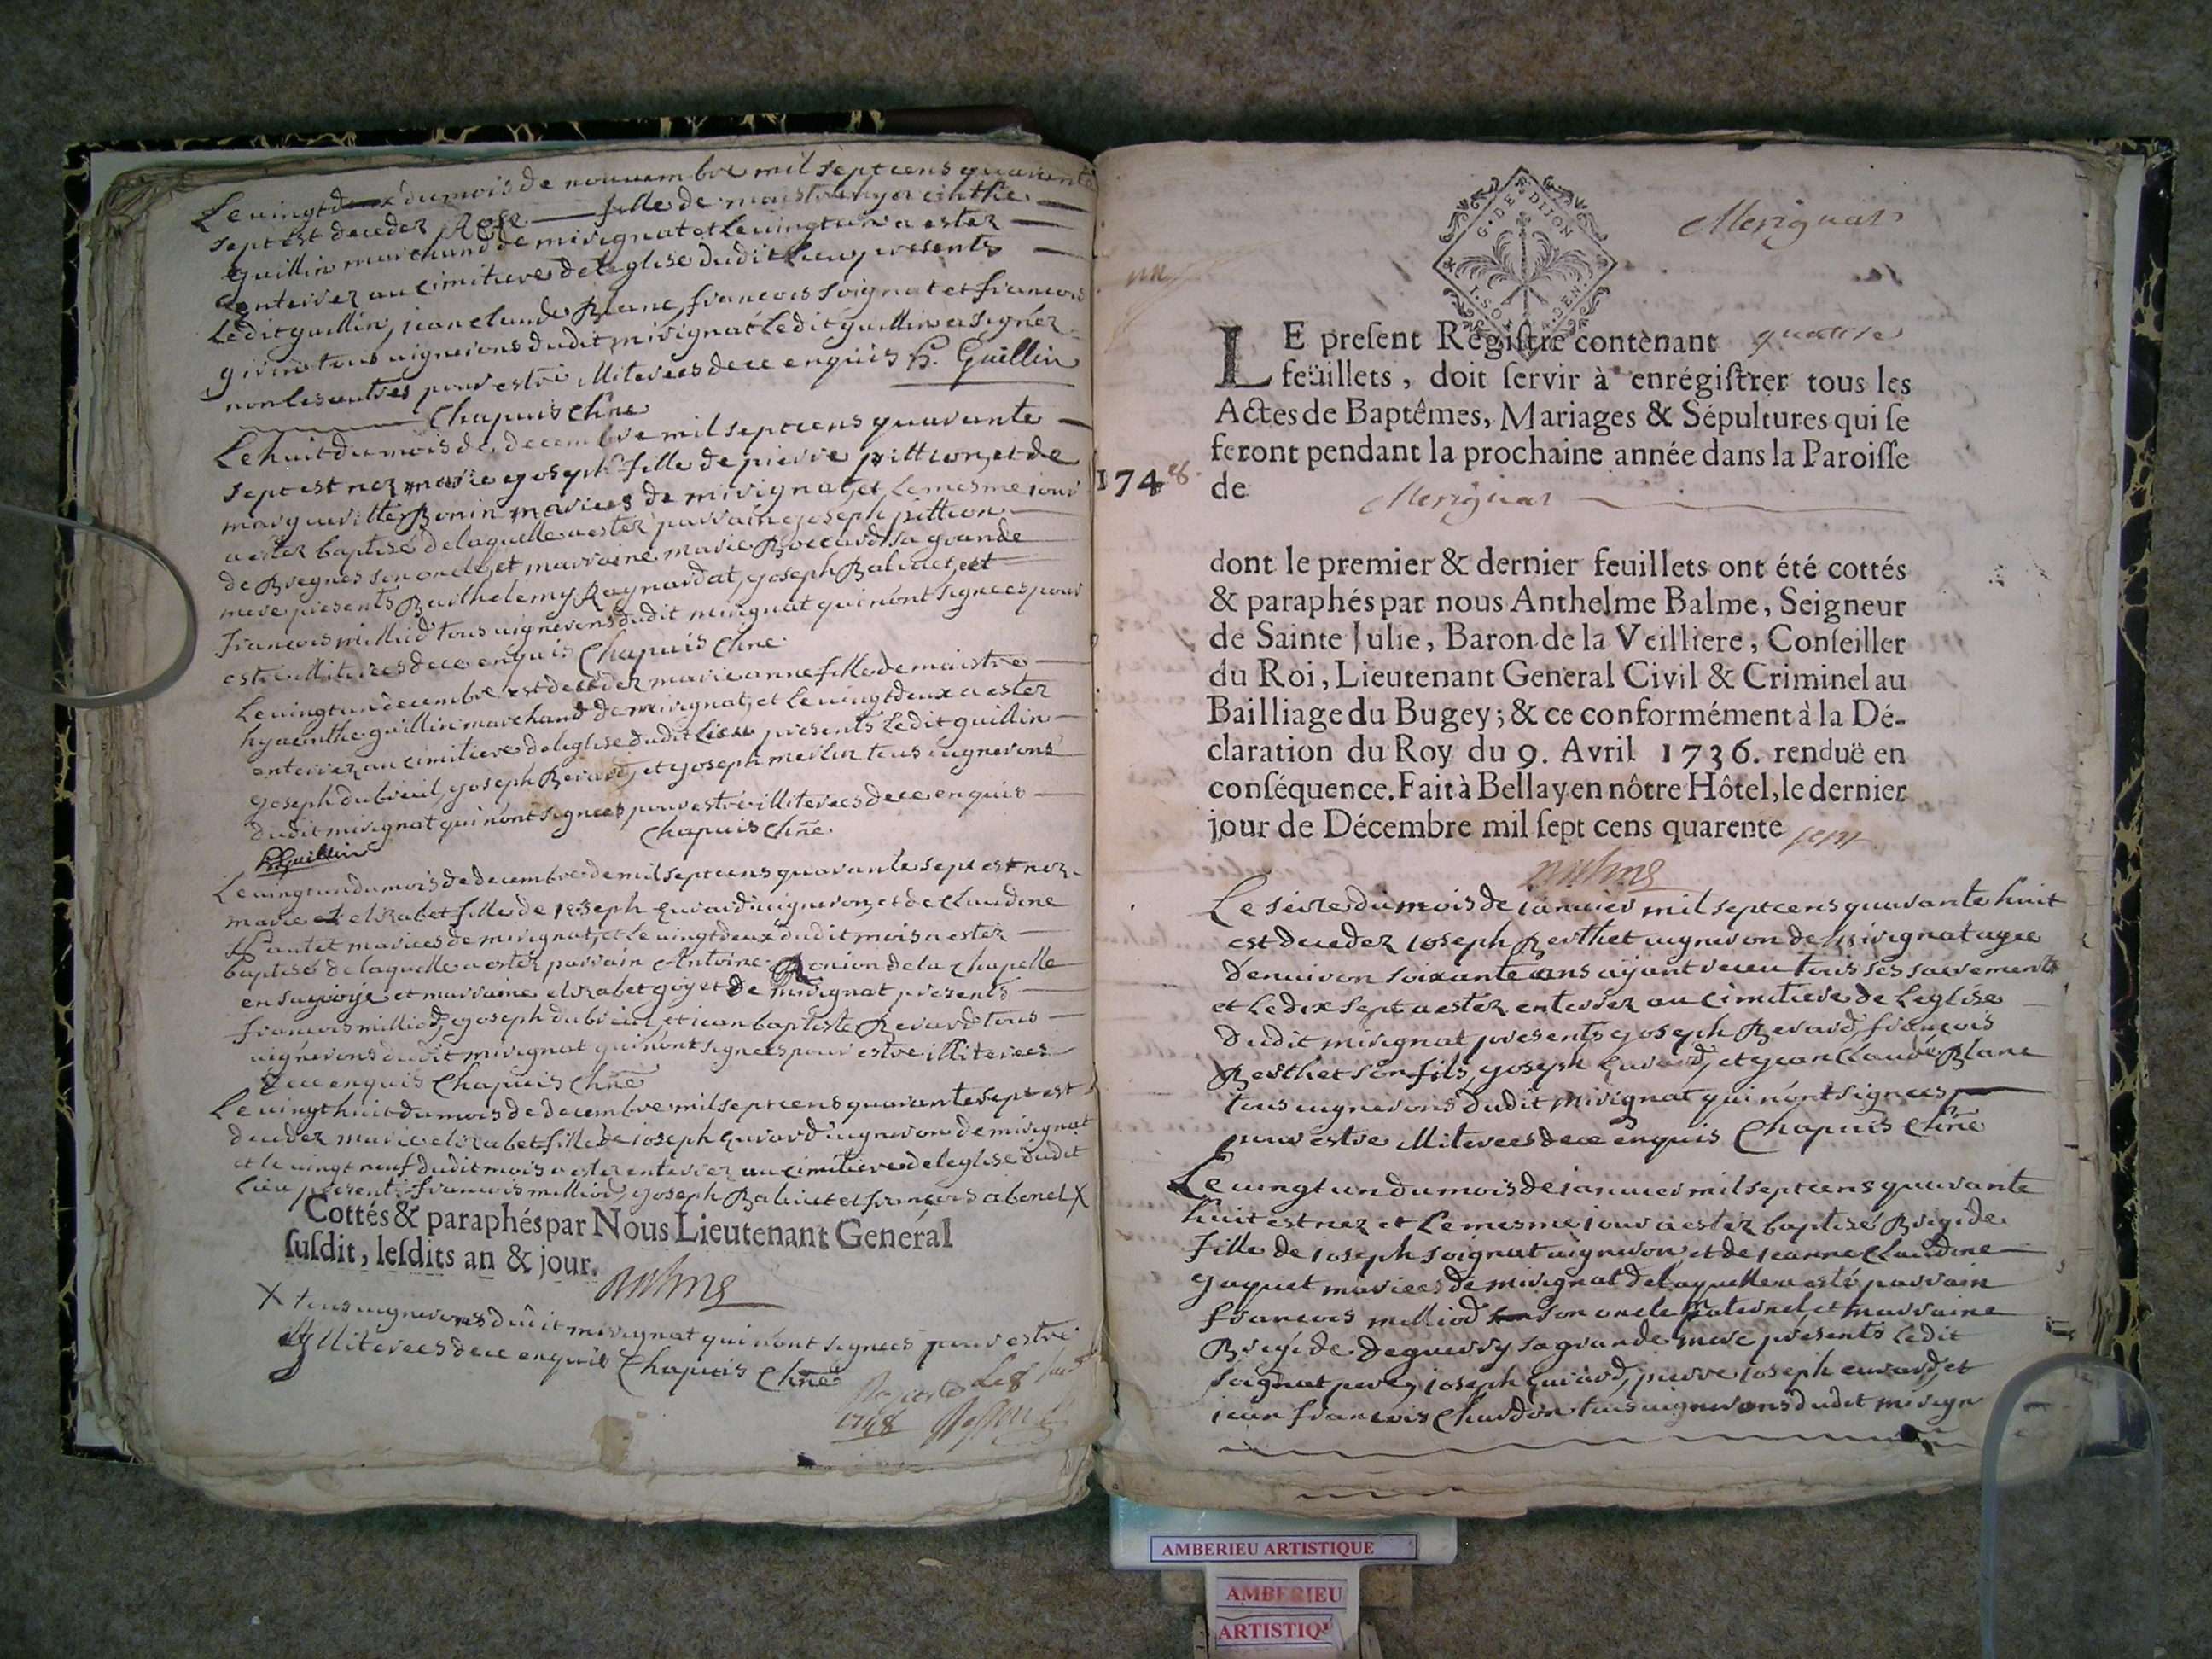 Le vingt du mois de novembre mil sept cens quarante
sept est deceder Rose fille de maistre hyacinthe
guillin marchand de mirignat et le vingt un a ester
enterrez au cimitiere de leglise dudit Lieu presents
Ledit guillin, jean claude Blanc, francois soignat et francois
tous vignerons dudit mirignat Ledit guillin a signéz
non les autres pour estre illiterees de ce enquis h. Guillin
Chapuis Chne
Le huit du mois de decembre mil sept cens quarante
sept est nez marie joseph fille de pierre pittion, et de
margueritte Bonin mariees de mirignat, et le mesme jour
a ester baptisé de laquelle a ester parrain joseph pittion
de Bregnes son oncle, et marraine marie Boccard sa grande
mere presents Barthelemy Raynardat, joseph Baluet, et
francois milliod tous vignerons dudit mirignat qui nont signees pour
estre illiterees de ce enquis Chapuis Chne
Le vingt un decembre est deceder marie anne fille de maistre
hyacinthe guillin marchand de mirignat, et le vingt deux a ester
enterrez au cimitiere de leglise dudit Lieu presents Ledit guillin
joseph dubreuil, joseph Berard, et joseph merlin tous vignerons
dudit mirignat qui nont signees pour estre illiterees de ce enquis
Chapuis Chne
h. Guillin
Le vingt un du mois de decembre de mil sept cens quarante sept est nez
marie elizabet fille de joseph Euvard vigneron, et de Claudine
mariees de mirignat, et le vingt deux dudit mois a ester
baptisé de laquelle a ester parrain Antoine Bonion de la Chapelle
en savoye et marraine elizabet goyet de mirignat presents
francois milliod, joseph dubreuil, et jean baptiste Berard tous
vignerons dudit mirignat qui nont signees pour estre illiterees
de ce enquis Chapuis Chne
Le vingt huit du mois de decembre mil sept cens quarante sept est
deceder marie elizabet fille de joseph Euvard vigneron de mirignat
et le vingt neuf dudit mois a ester enterrez au cimitiere de leglise dudit
Lieu present francois milliod, joseph Baluet et francois abenel X
Cottés & paraphés par Nous Lieutenant Général
ſuſdit, leſdits an & jour.
Balme
X tous vignerons dudit mirignat qui nont signees pour estre
illiterees de ce enquis Chapuis Chne
Le 8
1748
G. DE DIJON
Merignat
LE preſent Regiſtre contenant quatre
feüillets, doit ſervir à enrégiſtrer tous les
Actes de Baptêmes, Mariages & Sépultures qui ſe
feront pendant la prochaine année dans la Paroiſſe
1748 de Merignat
dont le premier & dernier feuillets ont été cottés
& paraphés par nous Anthelme Balme, Seigneur
de Sainte Julie, Baron de la Veilliere, Conſeiller
du Roi, Lieutenant General Civil & Criminel au
Bailliage du Bugey; & ce conformément à la Dé-
claration du Roy du 9. Avril 1736. renduë en
conſéquence. Fait à Bellay en nôtre Hôtel, le dernier
jour de Décembre mil ſept cens quarente sept
Balme
Le seize du mois de janvier mil sept cens quarante huit
est deceder joseph Berthet vigneron de mirignat agee
denviron soixante ans ayant receu tous ses sacrements
et le dix sept a ester enterrez au cimitiere de Leglise
dudit mirignat presents joseph Berard, françois
Berthet son fils, joseph Euvard, et jean Claude Blanc
tous vignerons dudit mirignat qui nont signees
pour estre illiterees de ce enquis Chapuis Chne
Le vingt un du mois de janvier mil sept cens quarante
huit est nez et le mesme jour a ester baptisé Brigide
fille de joseph soignat vigneron, et de jeanne Claudine
jaquet mariees de mirignat de laquelle a esté parrain
francois milliod son oncle maternel et marraine
Brigide deguerry sa grande mere presents Ledit
soignat pere, joseph Euvard, pierre joseph euvard, et
jean francois Chardon tous vignerons dudit mirign
AMBERIEU ARTISTIQUE
AMBERIEU
ARTISTIQU